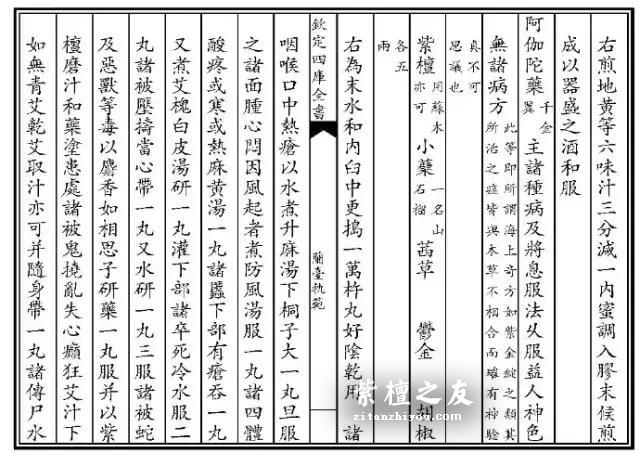 右煎地黄等六味汁三分減一内蜜調入膠末候煎
成以器盛之酒和服
阿伽陀藥 千金翼 主諸種病及將息服法乆服益人神色
無諸病方 此等即所謂海上奇方如紫金錠之類其
所治之症皆與本草不相合而確有神驗
真不可
思議也
紫檀 用蘇木亦可 小蘗 一名山石榴 茜草 鬱金 胡椒
各五
兩
右為末水和内臼中更搗一萬杵丸好陰乾用 諸
欽定四庫全書 蘭臺軌範
咽喉口中熱瘡以水煮升麻湯下桐子大一丸旦服
之諸面腫心悶因風起者煮防風湯服一丸諸四體
酸疼或寒或熱麻黄湯一丸諸䘌下部有瘡吞一丸
又煮艾槐白皮湯研一丸灌下部諸卒死冷水服二
丸諸被壓擣當心帶一丸又水研一丸三服諸被蛇
及惡獸等毒以麝香如相思子研藥一丸服并以紫
檀磨汁和藥塗患處諸被鬼撓亂失心癲狂艾汁下
如無青艾乾艾取汁亦可并隨身帶一丸諸傳尸水
紫檀之友
zitanzhiyou.com